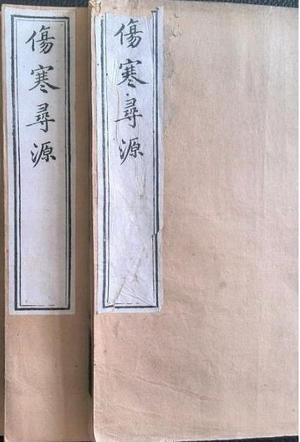 傷寒尋源
傷寒尋源